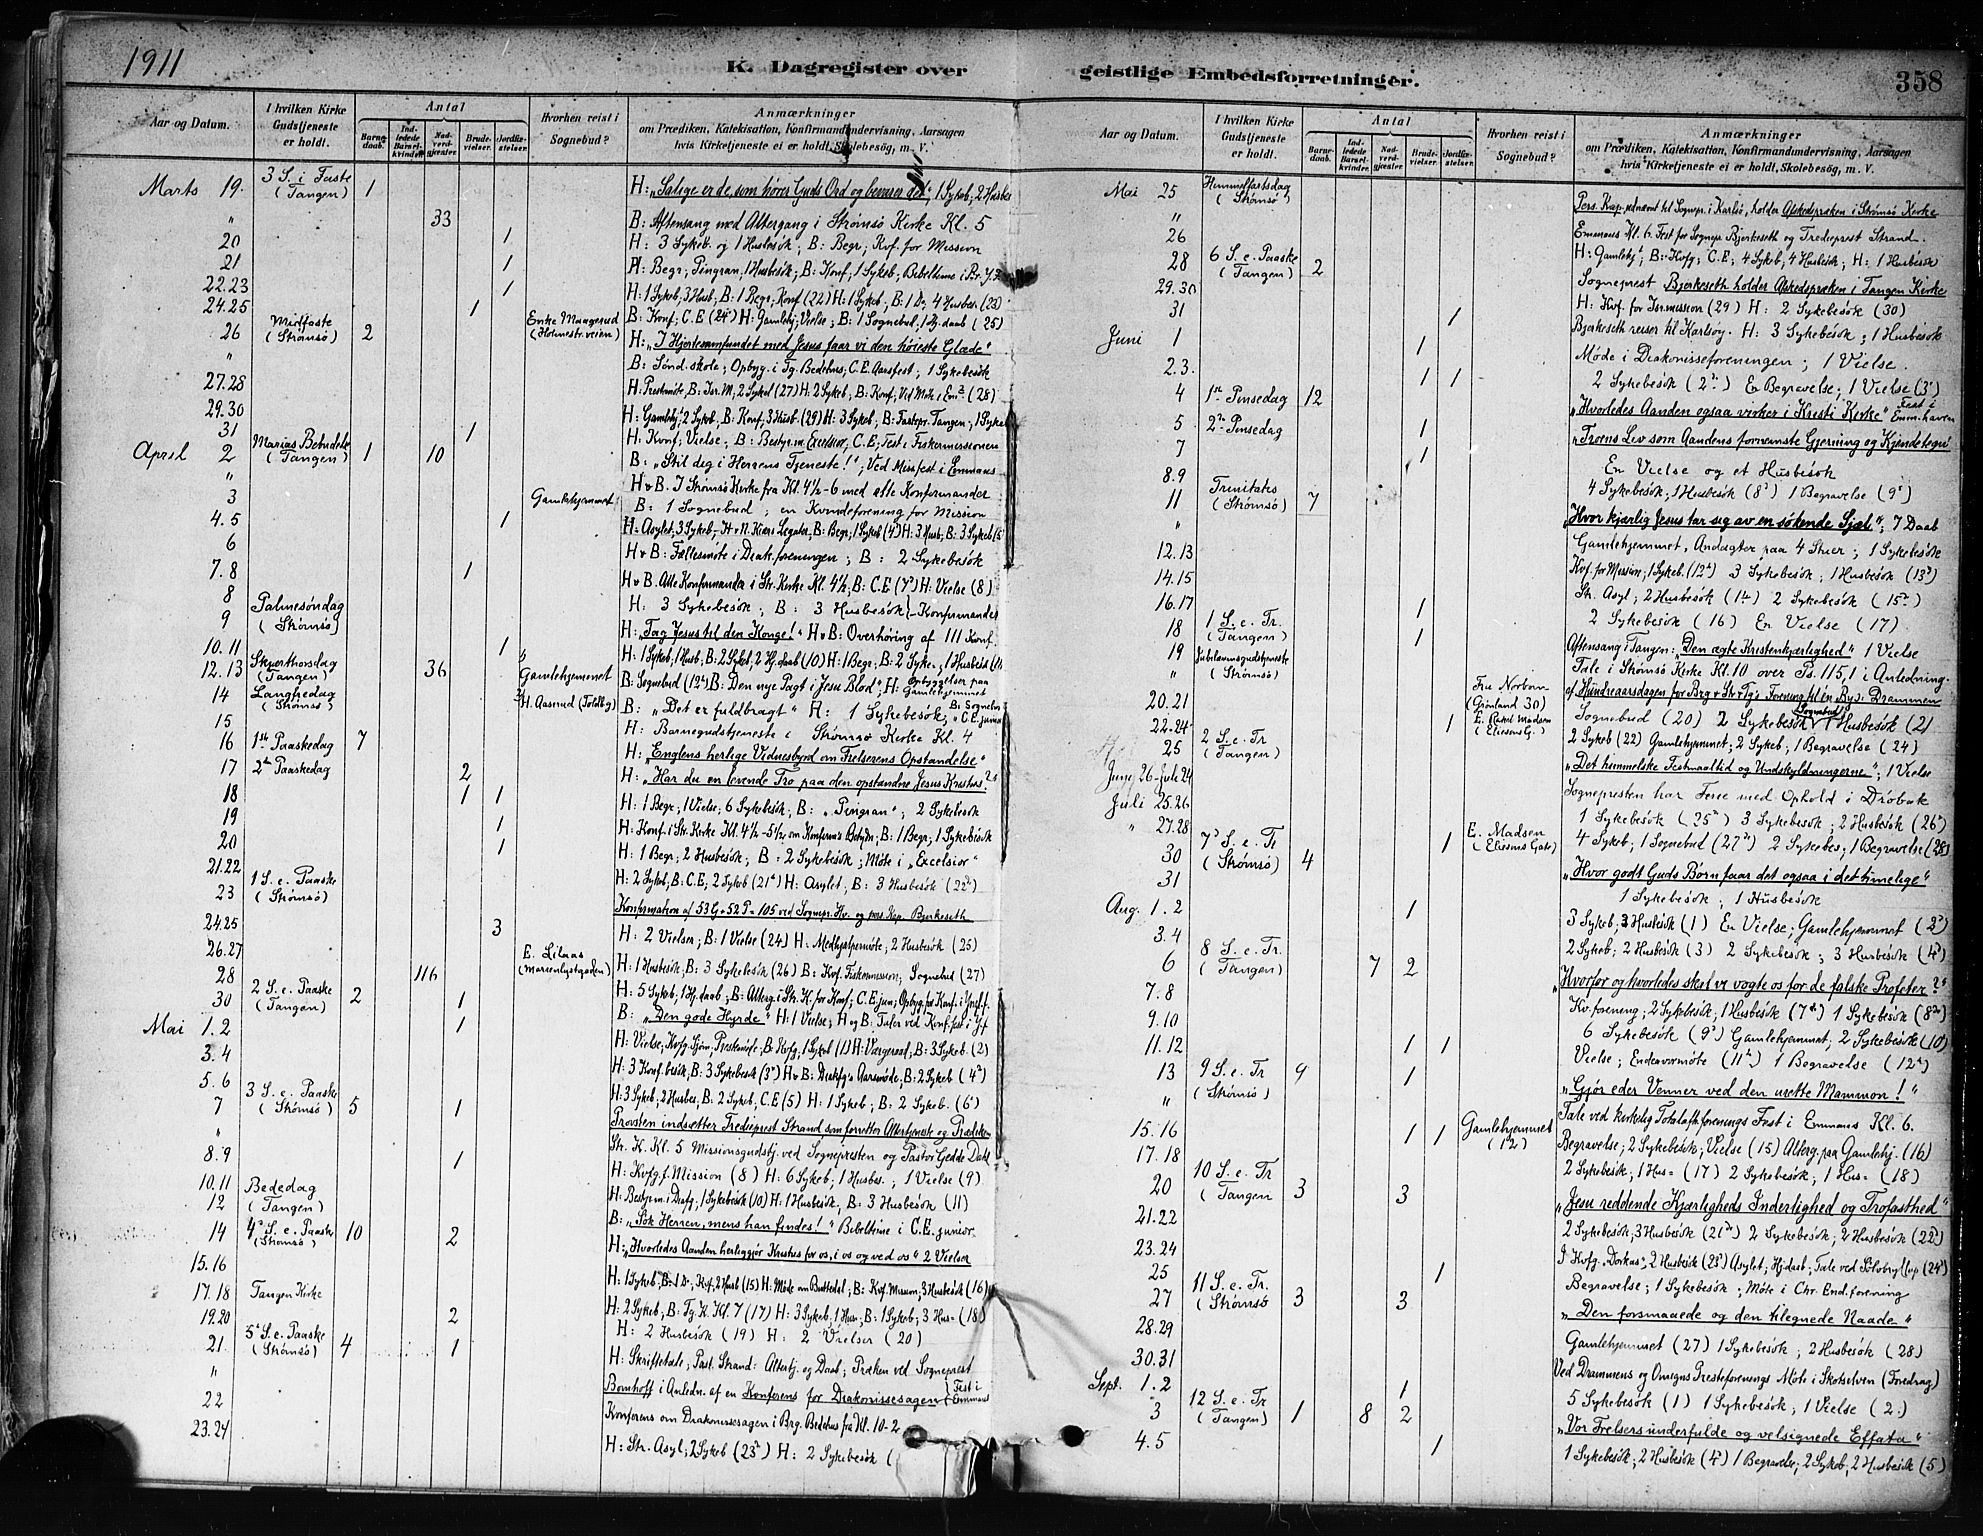 1911
K. Dagregister over
Aar og Datum.
I hvilken Kirke Gudstjeneste er holdt.
Antal
Barnedaab.
Indledede Barselkvinder.
Nadverdgjæster.
Brudevielser.
Jordfæstelser.
Hvorhen reist i Sognebud?
Anmærkninger
om Prædiken, Katekisation, Konfirmandundervisning, Aarsagen
hvis Kirketjeneste ei er holdt, Skolebesøg, m. V.
Marts 19. 3 S. i Faste (Tangen) 1 H: „Salige er de, som hører Guds Ord og bevarer det“, 1 Sykeb, 2 Husbes
" 33 B: Aftensang med Altergang i Strømsø Kirke Kl. 5
20 1 H: 3 Sykeb. og 1 Husbesøk; B: Begr; Kvf. for Mission
21 1 H: Begr; Pingran, 1 Husbesøk; B: Konf, 1 Sykeb, Bibeltime i
22.23 1 H: 1 Sykeb, 3 Husb; B: 1 Begr, Konf (22) H: 1 Sykeb, B: 4 Husbes. (23)
24.25 1 Enke Maagerud (Holmestr.veien) B: Konf; C.E (24) H: Gamlehj; Vielse; B: 1 Sognebud, 1 Hj.daab (25)
26 Midfaste (Strømsø) 2 H: „I Hjertesamfundet med Jesus faar vi den høieste Glæde“
" B: Sønd.skole; Opbyg. i Tg. Bedehus; C.E. Aarsfest; 1 Sykebesøk
27.28 H: Prestemøte; B: Isr. M, 2 Sykeb (27) H: 2 Sykeb, B: Konf, Ved Møte i Em. (28)
29.30 H: Gamlehj. 2 Sykeb, B: Konf; 3 Husb (29) H: 3 Sykeb, B: Fastepr. Tangen; 1 Sykeb
31 1 H: Konf; Vielse; B: Bestyr.m. Excelsior, C.E; Fest i Fiskermissionen
April 2 Marias Bebudelse (Tangen) 1 10 B: „Stil deg i Herrens Tjeneste!“; Ved Missfest i Emmaus
" H & B. I Strømsø Kirke fra Kl. 4½–6 med alle Konfirmander
3 Gamlehjemmet B: 1 Sognebud; en Kvindeforening for Mission
4.5 1 H: Asylet, 3 Sykeb – H & N. Kiærs Legater, B: Begr; 1 Sykeb (4) H: 3 Husb; B: 3 Sykeb (5
6 H & B: Fællesmöte i Diak.foreningen; B: 2 Sykebesøk
7.8 1 H & B. Alle Konfirmander i Str. Kirke Kl. 4½; B: C.E (7) H: Vielse (8)
8 H: 3 Sykebesøk; B: 3 Husbesøk – Konfirmander
9 Palmesøndag (Strømsø) H: „Tag Jesus til den Konge!“ H & B: Overhøring af 111 Konf.
10.11 1 H: 1 Sykeb, 1 Husb, B: 2 Sykeb, 2 Hj.daab (10) H: 1 Begr; B: 2 Syke., 1 Husbesøk (11
12.13 Skjærthorsdag (Tangen) 36 Gamlehjemmet B: Sognebud (12) B: „Den nye Pagt i Jesu Blod“; H: Opbyggelser paa Gamlehjemmet
14 Langfredag (Strømsø) H. Aaserud (Toldbg) B: „Det er fuldbragt“ H: 1 Sykebesøk; B: Sognebud, C.E. junior
15 H: Barnegudstjeneste i Strømsø Kirke Kl. 4
16 1ste Paaskedag 7 H: „Englens herlige Vidnesbyrd om Frelserens Opstandelse“
17 2den Paaskedag 2 H: „Har du en levende Tro paa den opstandne Jesus Kristus?“
18 1 1 H: 1 Begr, 1 Vielse, 6 Sykebesøk, B: „Pingran“; 2 Sykebesøk
19 1 H: Konf. i Str. Kirke Kl. 4½–5½ om Konferm's Betydn; B: 1 Begr; 1 Sykebesøk
20 1 H: 1 Begr; 2 Husbesøk; B: 2 Sykebesøk; Møte i „Excelsior“
21.22 H: 2 Sykeb, B: C.E, 2 Sykeb (21) H: Asylet, B: 3 Husbesøk (22)
23 1 S. e. Paaske (Strømsø) Konfirmation af 53 G + 52 P = 105 ved Sognepr. Hv. og pers Kap. Bjerkeseth
24.25 3 H: 2 Vielser, B: 1 Vielse (24) H: Medhjælpermøte, 2 Husbesøk (25)
26.27 E. Lilaas (Marienlystgaden) H: 1 Husbesøk, B: 3 Sykebesøk (26) B: Kvf. Fiskermission, Sognebud (27)
28 116 H: 5 Sykeb, 1 Hj.daab; B: Alterg. i Str. K. for Konf; C.E. jun; Opbyg. for Konf. i
30 2 S. e. Paaske (Tangen) 2 1 B: „Den gode Hyrde“ H: 1 Vielse; H og B: Taler ved Konf.fest i
Mai 1.2 1 H: Vielse, Kvfg. Sjøm, Prestemøde, B: Kvfg, 1 Sykeb (1) H: Værgeraad, B: 3 Sykeb. (2)
3.4 H: 3 Konf. besøk, B: 3 Sykebesøk (3) H & B: Diakfg's Aarsmøde, B: 2 Sykeb (4)
5.6 H: 3 Sykeb, 2 Husbes, B: 2 Sykeb, C.E (5) H: 1 Sykeb, B: 2 Sykeb. (6)
7 3 S. e. Paaske (Strømsø) 5 1 Provsten indsætter Tredieprest Strand som forretter Altertjeneste og Prædiken
" Str. K. Kl. 5 Missionsgudstj. ved Sognepresten og Pastor Gedde Dahl
8.9 1 H: Kvfg. f. Mission (8) H: 6 Sykeb, 1 Husbes., 1 Vielse (9)
10.11 Bededag H: Bestyrm. i Diafg, 1 Sykebesøk (10) H: 1 Husbesøk, B: 3 Husbesøk (11)
12 (Tangen) B: „Søk Herren, mens han findes!“ Bibeltime i C.E. junior.
14 4de S. e. Paaske (Strømsø) 10 2 H: „Hvorledes Aanden herliggjør Kristus for os, i os og ved os“ 2 Vielser
15.16 H: 1 Sykeb, B: Kvf, 2 Husb (15) H: Møte om B: Kvf. Mission, 3 Husbesøk (16)
17.18 Tangen Kirke H: 2 Sykeb, B: Tg. K. Kl. 7 (17) H: 3 Sykeb, 1 Hus-, B: 1 Sykeb, 3 Hus- (18)
19.20 2 H: 2 Husbesøk (19) H: 2 Vielser (20)
21. 5te S. e. Paaske (Strømsø) 4 1 H: Skriftetale; Past. Strand: Altertj. og Daab; Præken ved Sogneprest
" Bomhoff i Anledn. af en Konferens for Diakonissesagen (Fest i Emmaus
22 Konferens om Diakonissesagen i Brg. Bedehus fra Kl. 10–2
23.24 H: Str. Asyl; 2 Sykeb (23) H: 2 Sykebesøk (
geistlige Embedsforretninger.
358
Aar og Datum.
I hvilken Kirke Gudstjeneste er holdt.
Antal
Barnedaab.
Indledede Barselkvinder.
Nadverdgjæster.
Brudevielser.
Jordfæstelser.
Hvorhen reist i Sognebud?
Anmærkninger
om Prædiken, Katekisation, Konfirmandundervisning, Aarsagen
hvis Kirketjeneste ei er holdt, Skolebesøg, m. V.
Mai 25 Himmelfartsdag (Strømsø) Pers. Kap., udnævnt til Sognepr. i Karlsö, holder Afskedspræken i Strømsø Kirke
" Emmaus Kl. 6. Fest for Sognepr. Bjerkeseth og Tredieprest Strand.
26 H: Gamlehj; B: Kvfg; C.E; 4 Sykeb, 4 Husbesøk; H: 1 Husbesøk
28 6 S. e. Paaske (Tangen) 2 Sogneprest Bjerkeseth holder Afskedspræken i Tangen Kirke
29.30 H: Kvf. for Isr.mission (29) H: 2 Sykebesøk (30)
31 1 Bjerkeseth reiser til Karlsøy. H: 3 Sykebesøk; 1 Husbesøk
Juni 1 1 Møde i Diakonisseforeningen; 1 Vielse.
2.3. 1 1 2 Sykebesøk (2) En Begravelse; 1 Vielse (3)
4 1ste Pinsedag 12 „Hvorledes Aanden ogsaa virker i Kristi Kirke“ Fest i Emm.haven
5 2den Pinsedag 1 „Troens Liv som Aandens fornemste Gjerning og Kjendetegn“
7 1 En Vielse og et Husbesøk
8.9 4 Sykebesøk; 1 Husbesøk (8) 1 Begravelse (9)
11 Trinitatis (Strømsø) 7 „Hvor kjærlig Jesus tar sig av en søkende Sjæl“; 7 Daab
" Gamlehjemmet, Andagter paa 4 Stuer; 1 Sykebesøk
12.13 Kvf. for Mission; 1 Sykeb. (12) 3 Sykebesøk; 1 Husbesøk (13)
14.15 Str. Asyl; 2 Husbesøk (14) 2 Sykebesøk (15)
16.17 1 2 Sykebesøk (16) En Vielse (17)
18 1 S. e. Tr. (Tangen) 1 Aftensang i Tangen: „Den ægte Kristenkjærlighed“ 1 Vielse
19 Jubilæumsgudstjeneste Tale i Strømsø Kirke Kl. 10 over Ps. 115,1 i Anledning
" (Strømsø) af Hundreaarsdagen for Brg + Str + Tg's Forening til én By: Drammen
20.21 Fru Norbom (Grønland 30) Sognebud (20) 2 Sykebesøk, Sognebud, 1 Husbesøk (21
22.24 1 E. Rakel Madsen (Eliesens G.) 2 Sykeb (22) Gamlehjemmet; 2 Sykeb, 1 Begravelse (24)
25 2 S. e. Tr (Tangen) „Det himmelske Festmaaltid og Undskyldningerne“, 1 Vielse
Juni 26–Juli 24 Sognepresten har Ferie med Ophold i Drøbak
Juli 25.26 1 Sykebesøk (25) 3 Sykebesøk; 2 Husbesøk (26)
" 27.28 1 E. Madsen (Eliesens Gate) 4 Sykeb; 1 Sognebud (27) 2 Sykebes; 1 Begravelse (28)
30 7de S. e. Tr (Strømsø) 4 „Hvor godt Guds Børn faar det ogsaa i det timelige“
31 1 Sykebesøk; 1 Husbesøk
Aug. 1.2 1 3 Sykeb, 3 Husbesøk (1) En Vielse; Gamlehjemmet (2)
3.4 2 Sykeb; 2 Husbesøk (3) 2 Sykebesøk; 3 Husbesøk (4)
6 8 S. e. Tr. (Tangen) 7 2 „Hvorfor og hvorledes skal vi vogte os for de falske Profeter?“
7.8 Kv.forening; 2 Sykebesøk, 1 Husbesøk (7) 1 Sykebesøk (8)
9.10 6 Sykebesøk (9) Gamlehjemmet; 2 Sykebesøk (10)
11.12 1 1 Vielse; Endeavormøte (11) 1 Begravelse (12)
13 9 S. e. Tr (Strømsø) 9 1 „Gjør eder Venner ved den urette Mammon!“
" Tale ved kirkelig Totalafh.forenings Fest i Emmaus Kl. 6.
15.16 1 1 Gamlehjemmet (12) Begravelse; 2 Sykebesøk; Vielse (15) Alterg. paa Gamlehj. (16)
17.18 2 Sykebesøk; 1 Hus- (17) 2 Sykebesøk, 1 Hus- (18)
20 10 S. e. Tr (Tangen 3 3 „Jesu reddende Kjærligheds Inderlighed og Trofasthed“
21.22 2 Sykebesøk; 3 Husbesøk (21) 2 Sykebesøk; 2 Husbesøk (22)
23.24 I Kvfg. „Dorkas“, 2 Husbesøk (23) Asylet, Hj.daab; Tale ved Sølvbryllup (24)
25 1 Begravelse; 1 Sykebesøk; Møte i Chr. End.forening
27 11 S. e. Tr. (Strømsø 3 3 „Den forsmaaede og den tilegnede Naade“
28.29 Gamlehjemmet (27) 1 Sykebesøk; 2 Husbesøk (28)
30.31 Ved Drammens og Omegns Presteforenings Møte i Skotselven (Foredrag)
Sept. 1.2 1 5 Sykebesøk (1) 1 Sykebesøk; 1 Vielse (2.)
3 12 S. e. Tr (Tangen) 1 8 2 „Vor Frelsers underfulde og velsignede Effata“
4.5 1 1 Sykebesøk; 2 Husbesøk (4) 1 Begravelse; 2 Sykeb; 2 Husbesøk (5)